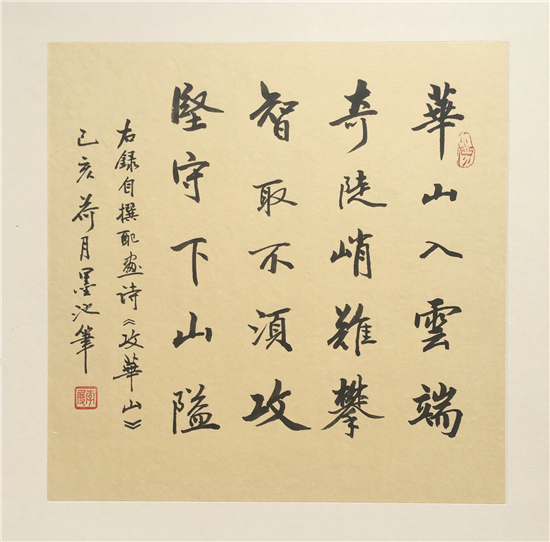 華山入雲端
奇陡峭難攀
智取不須攻
堅守下山隘
右録自撰配畫诗《攻華山》
己亥荷月墨池筆